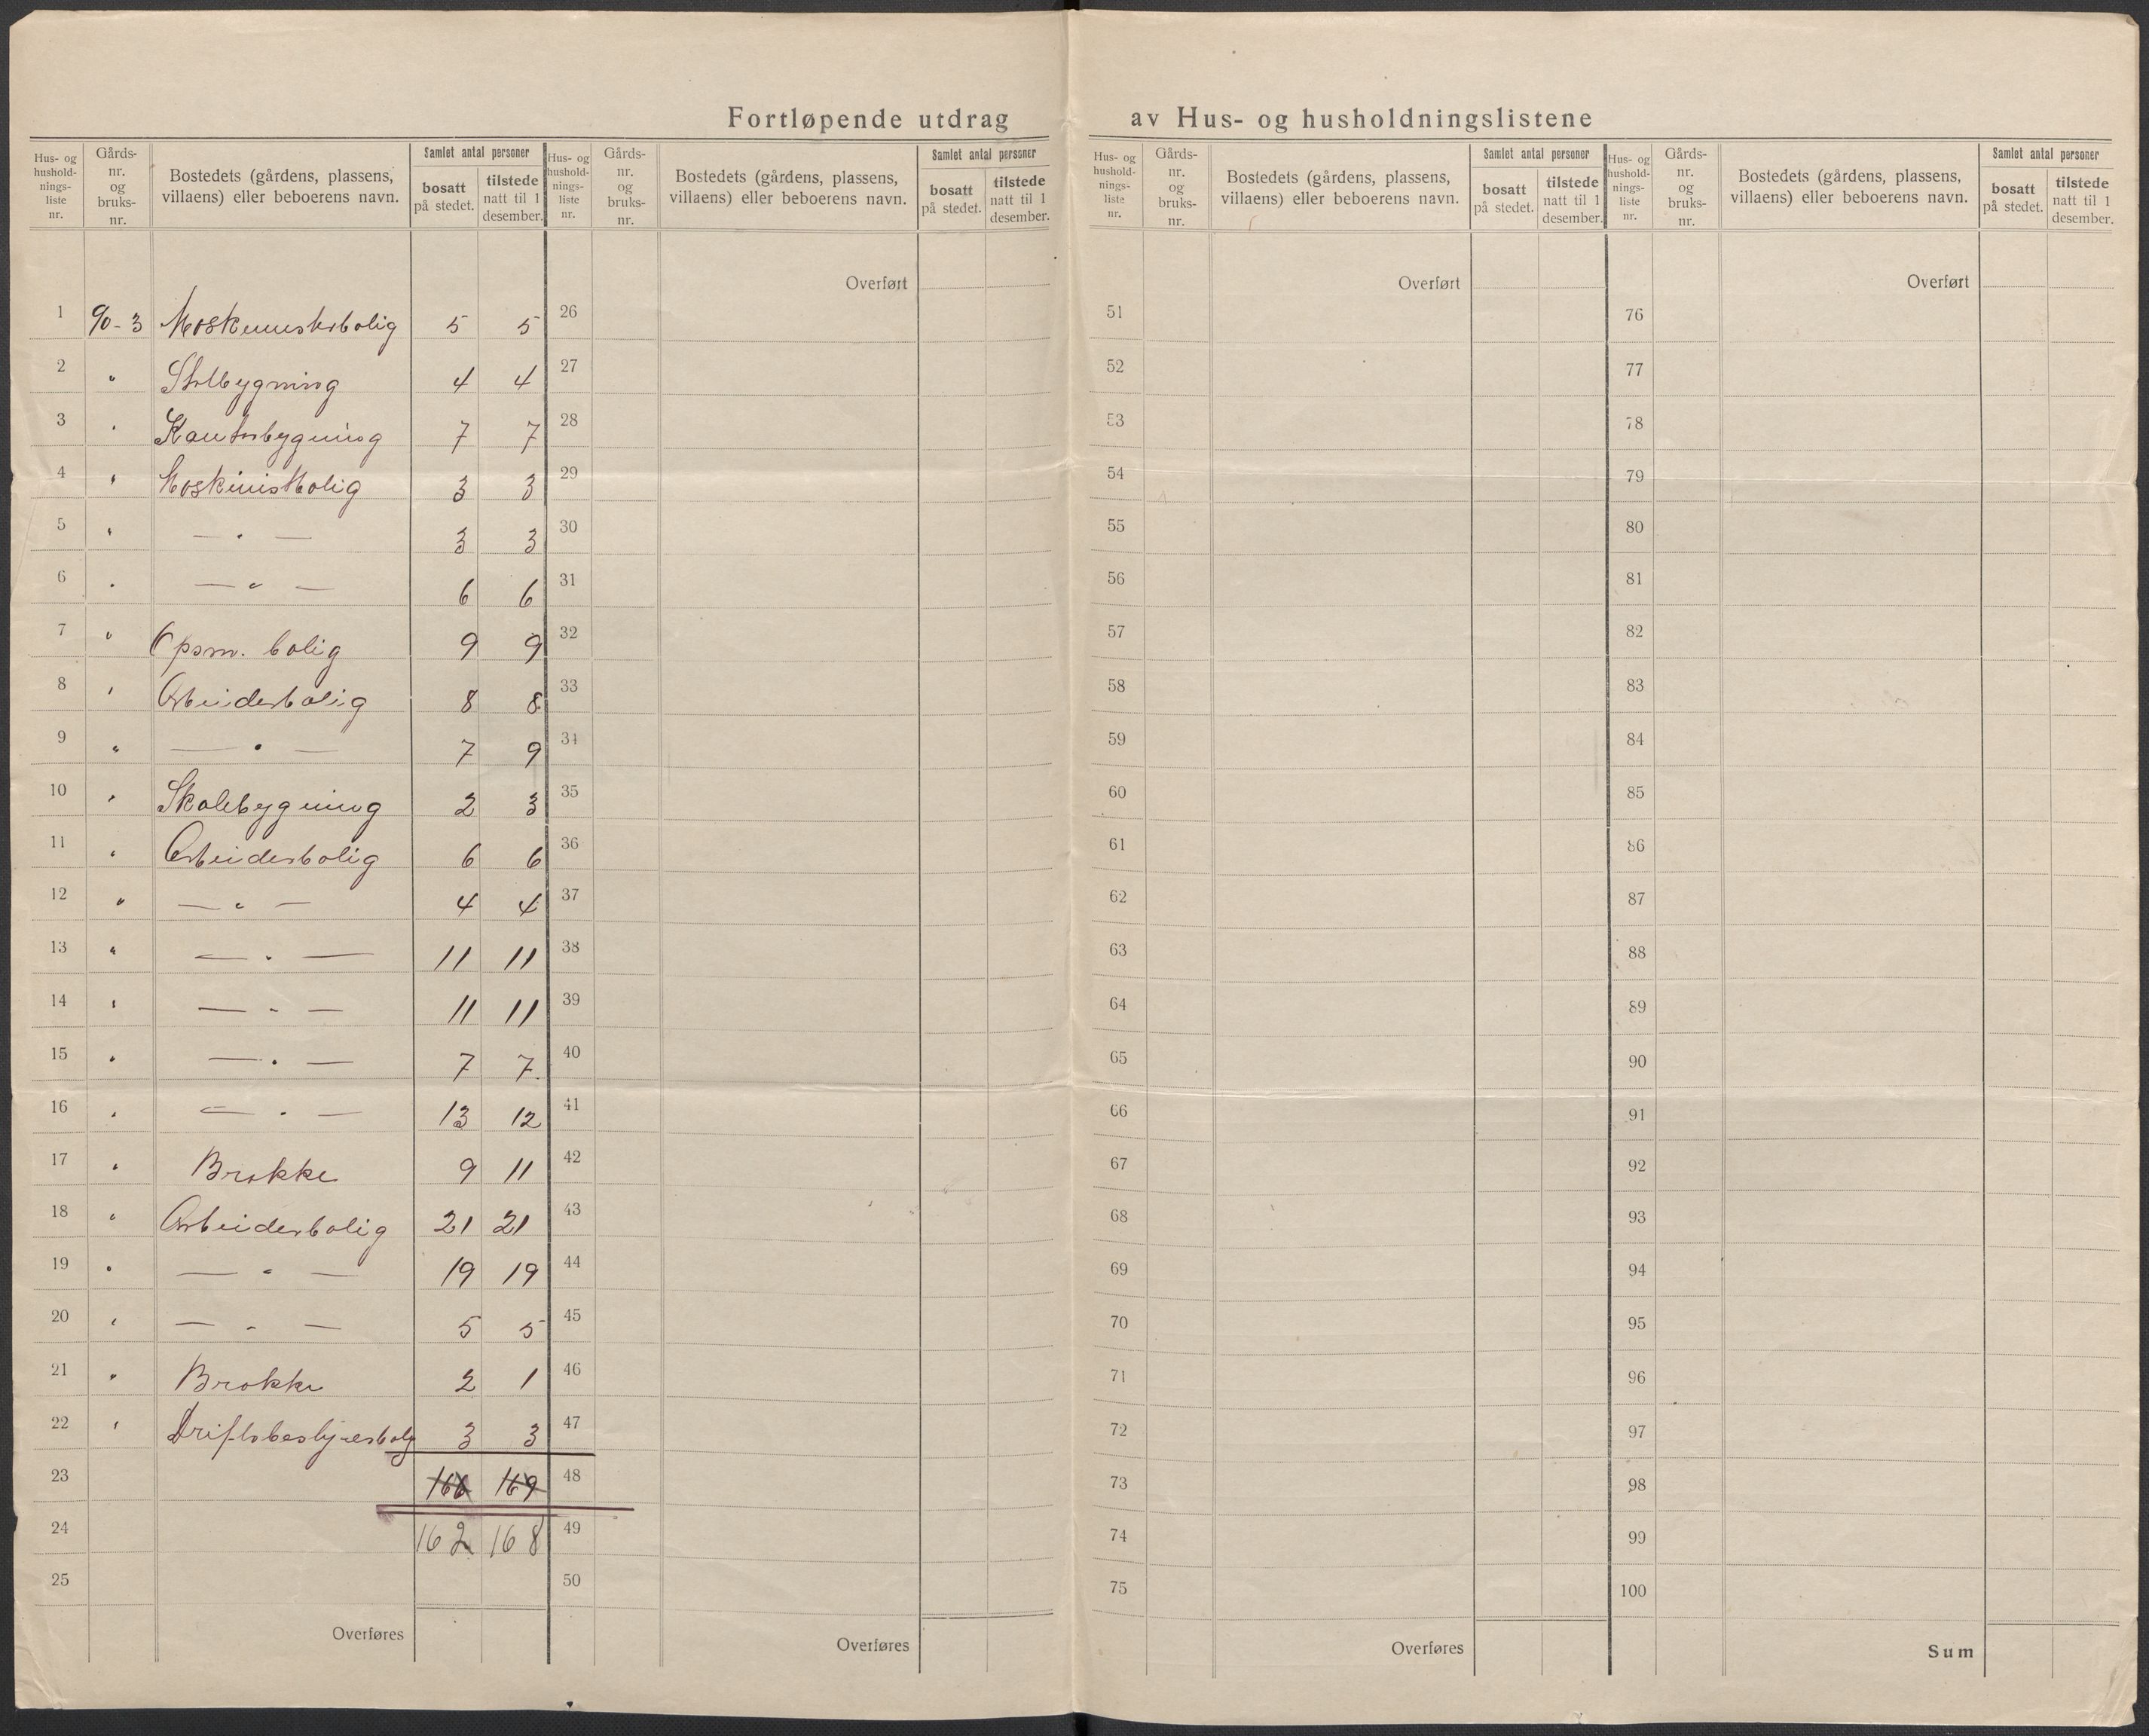 Fortløpende utdrag av Hus- og husholdningslistene
Hus- og hushold-nings-liste nr. Gårds-nr. og bruks-nr. Bostedets (gårdens, plassens, villaens) eller beboerens navn. Samlet antal personer bosatt på stedet. tilstede natt til 1 desember.
1 90-3 Moskemesterbolig 5 5
2 " Stolbygning 4 4
3 " Kontorbygning 7 7
4 " Moskinistbolig 3 3
5 " — " — 3 3
6 " — " — 6 6
7 " Opsm. bolig 9 9
8 " Arbeiderbolig 8 8
9 " — " — 7 9
10 " Skolebygning 2 3
11 " Arbeiderbolig 6 6
12 " — " — 4 4
13 " — " — 11 11
14 " — " — 11 11
15 " — " — 7 7
16 " — " — 13 12
17 " Brakke 9 11
18 " Arbeiderbolig 21 21
19 " — " — 19 19
20 " — " — 5 5
21 " Brakke 2 1
22 " Driftsbestyresbolg 3 3
23 166 169
24 162 168
25
Overføres
Hus- og hushold-nings-liste nr. Gårds-nr. og bruks-nr. Bostedets (gårdens, plassens, villaens) eller beboerens navn. Samlet antal personer bosatt på stedet. tilstede natt til 1 desember.
Overført
26
27
28
29
30
31
32
33
34
35
36
37
38
39
40
41
42
43
44
45
46
47
48
49
50
Overføres
Hus- og hushold-nings-liste nr. Gårds-nr. og bruks-nr. Bostedets (gårdens, plassens, villaens) eller beboerens navn. Samlet antal personer bosatt på stedet. tilstede natt til 1 desember.
Overført
51
52
53
54
55
56
57
58
59
60
61
62
63
64
65
66
67
68
69
70
71
72
73
74
75
Overføres
Hus- og hushold-nings-liste nr. Gårds-nr. og bruks-nr. Bostedets (gårdens, plassens, villaens) eller beboerens navn. Samlet antal personer bosatt på stedet. tilstede natt til 1 desember.
Overført
76
77
78
79
80
81
82
83
84
85
86
87
88
89
90
91
92
93
94
95
96
97
98
99
100
Sum